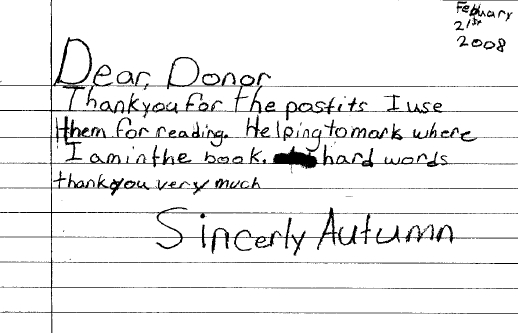 February
21st
2008
Dear, Donor
Thankyou for the postits I use
them for reading. Helping to mark where
I am in the book. hard words
thankyou very much
Sincerly Autumn